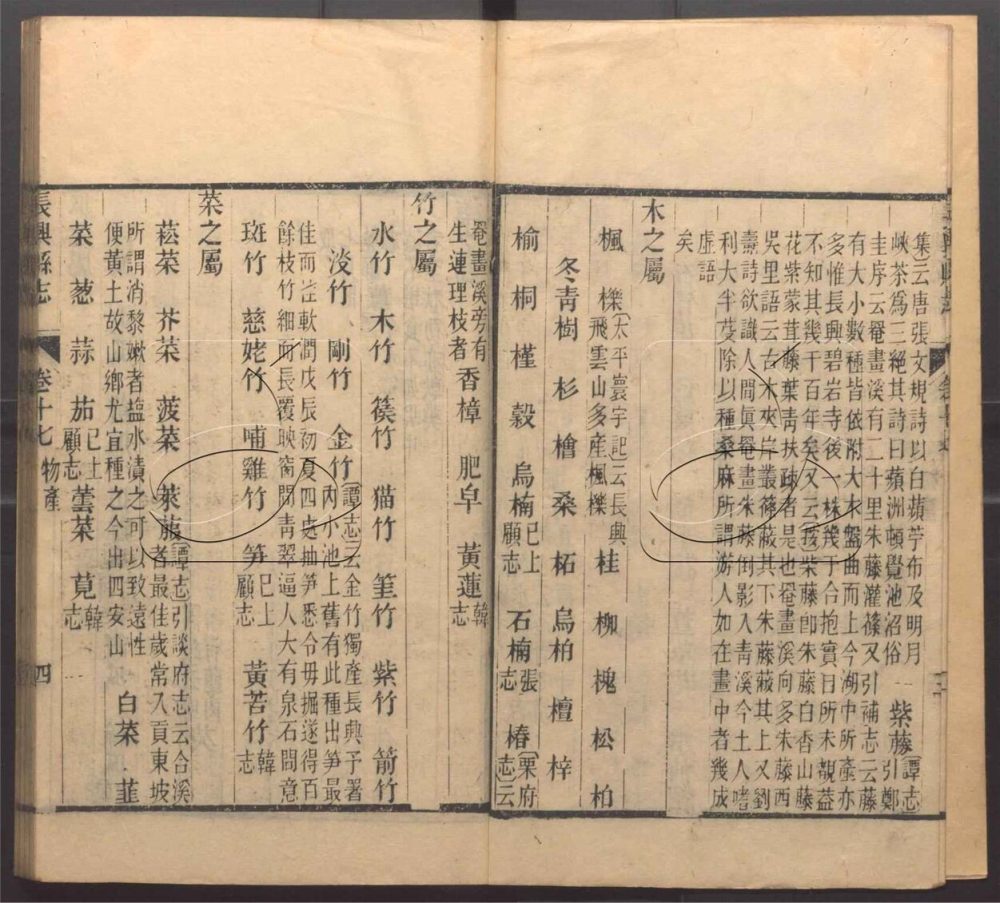 集云唐張文規詩以白蘋苧布及明月
峽茶爲三絕其詩曰蘋洲頓覺池沼俗 紫藤 譚志引鄭
圭序云罨畫溪有二十里朱藤灌篠又引補志云藤
有大小數種皆依附大木盤曲而上今湖中所產亦
多惟長興碧岩寺後一株幾于合抱實目所未覩葢
不知其幾千百年矣又云按柴藤卽朱藤白香山藤
花紫蒙茸藤葉靑扶疎者是也罨畫溪向多朱藤西
吳里語云古木夾岸叢篠蔽其下朱藤蔽其上又劉
壽詩欲識人間眞罨畫朱藤倒影入靑溪今土人嗜
利大半芟除以種桑麻所謂游人如在畫中者幾成
虛語
矣
木之屬
楓 櫟 太平寰宇記云長興飛雲山多產楓櫟 桂 柳 槐 松 柏
冬靑樹 杉 檜 桑 柘 烏桕 檀 梓
榆 桐 槿 穀 烏楠 已上顧志 石楠 張志 椿 栗府志云
罨畫溪旁有生連理枝者 香樟 肥皁 黃蓮 韓志
竹之屬
水竹 木竹 篌竹 猫竹 筀竹 紫竹 箭竹
淡竹 剛竹 金竹 譚志云金竹獨產長興予署
內小池上舊有此種出笋最
佳而泣軟澗戊辰初夏四處抽笋悉令毋掘遂得百
餘枝竹細而長覆映窗閒靑翠逼人大有泉石間意
斑竹 慈姥竹 哺雞竹 笋 已上顧志 黃苦竹 韓志
菜之屬
菘菜 芥菜 菠菜 萊菔 譚志引談府志云合溪
者最佳歲常入貢東坡
所謂消黎嫩者塩水漬之可以致遠性
便黃土故山鄉尤宜種之今出四安山 白菜 韮
菜 葱 蒜 茄 已上顧志 蕓菜 莧 韓志
長興縣志 卷十七 物產 四